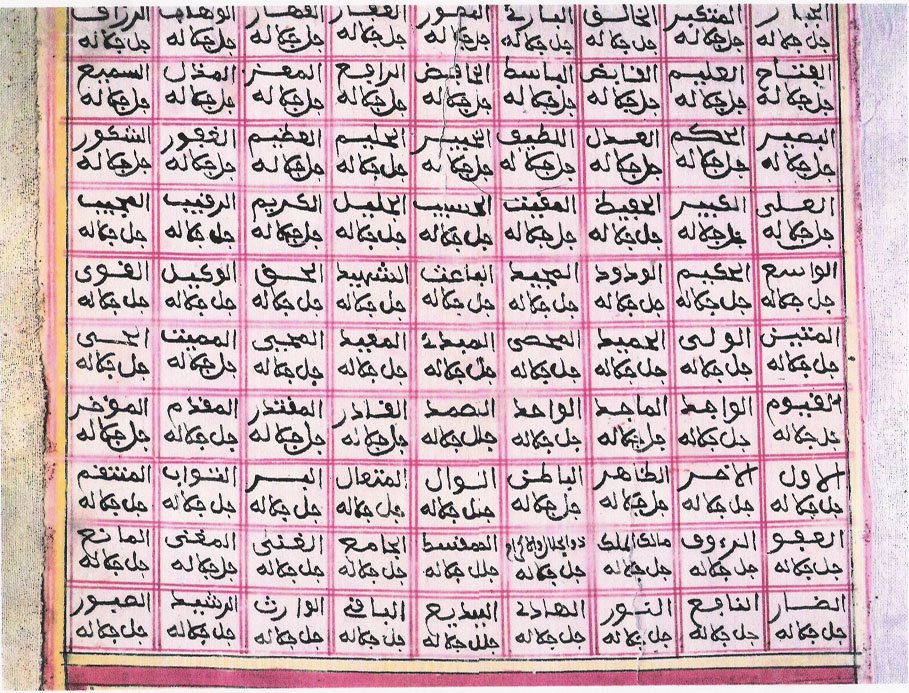 الجبار المتكبر الخالق البارئ المصور الغفار القهار الوهاب الرزاق
جل جلاله جل جلاله جل جلاله جل جلاله جل جلاله جل جلاله جل جلاله جل جلاله جل جلاله
الفتاح العليم القابض الباسط الخافض الرافع المعز المذل السميع
جل جلاله جل جلاله جل جلاله جل جلاله جل جلاله جل جلاله جل جلاله جل جلاله جل جلاله
البصير الحكم العدل اللطيف الخبير الحليم العظيم الغفور الشكور
جل جلاله جل جلاله جل جلاله جل جلاله جل جلاله جل جلاله جل جلاله جل جلاله جل جلاله
العلى الكبير الحفيظ المقيت الحسيب الجليل الكريم الرقيب المجيب
جل جلاله جل جلاله جل جلاله جل جلاله جل جلاله جل جلاله جل جلاله جل جلاله جل جلاله
الواسع الحكيم الودود المجيد الباعث الشهيد الحق الوكيل القوى
جل جلاله جل جلاله جل جلاله جل جلاله جل جلاله جل جلاله جل جلاله جل جلاله جل جلاله
المتين الولى الحميد المحصى المبدئ المعيد المحيى المميت الحى
جل جلاله جل جلاله جل جلاله جل جلاله جل جلاله جل جلاله جل جلاله جل جلاله جل جلاله
القيوم الواجد الماجد الواحد الصمد القادر المقتدر المقدم المؤخر
جل جلاله جل جلاله جل جلاله جل جلاله جل جلاله جل جلاله جل جلاله جل جلاله جل جلاله
الاول الاخر الظاهر الباطن الوال المتعال البر التواب المنتقم
جل جلاله جل جلاله جل جلاله جل جلاله جل جلاله جل جلاله جل جلاله جل جلاله جل جلاله
العفو الرءوف مالك الملك ذو الجلال والاكرام المقسط الجامع الغنى المغنى المانع
جل جلاله جل جلاله جل جلاله جل جلاله جل جلاله جل جلاله جل جلاله جل جلاله جل جلاله
الضار النافع النور الهادي البديع الباقي الوارث الرشيد الصبور
جل جلاله جل جلاله جل جلاله جل جلاله جل جلاله جل جلاله جل جلاله جل جلاله جل جلاله